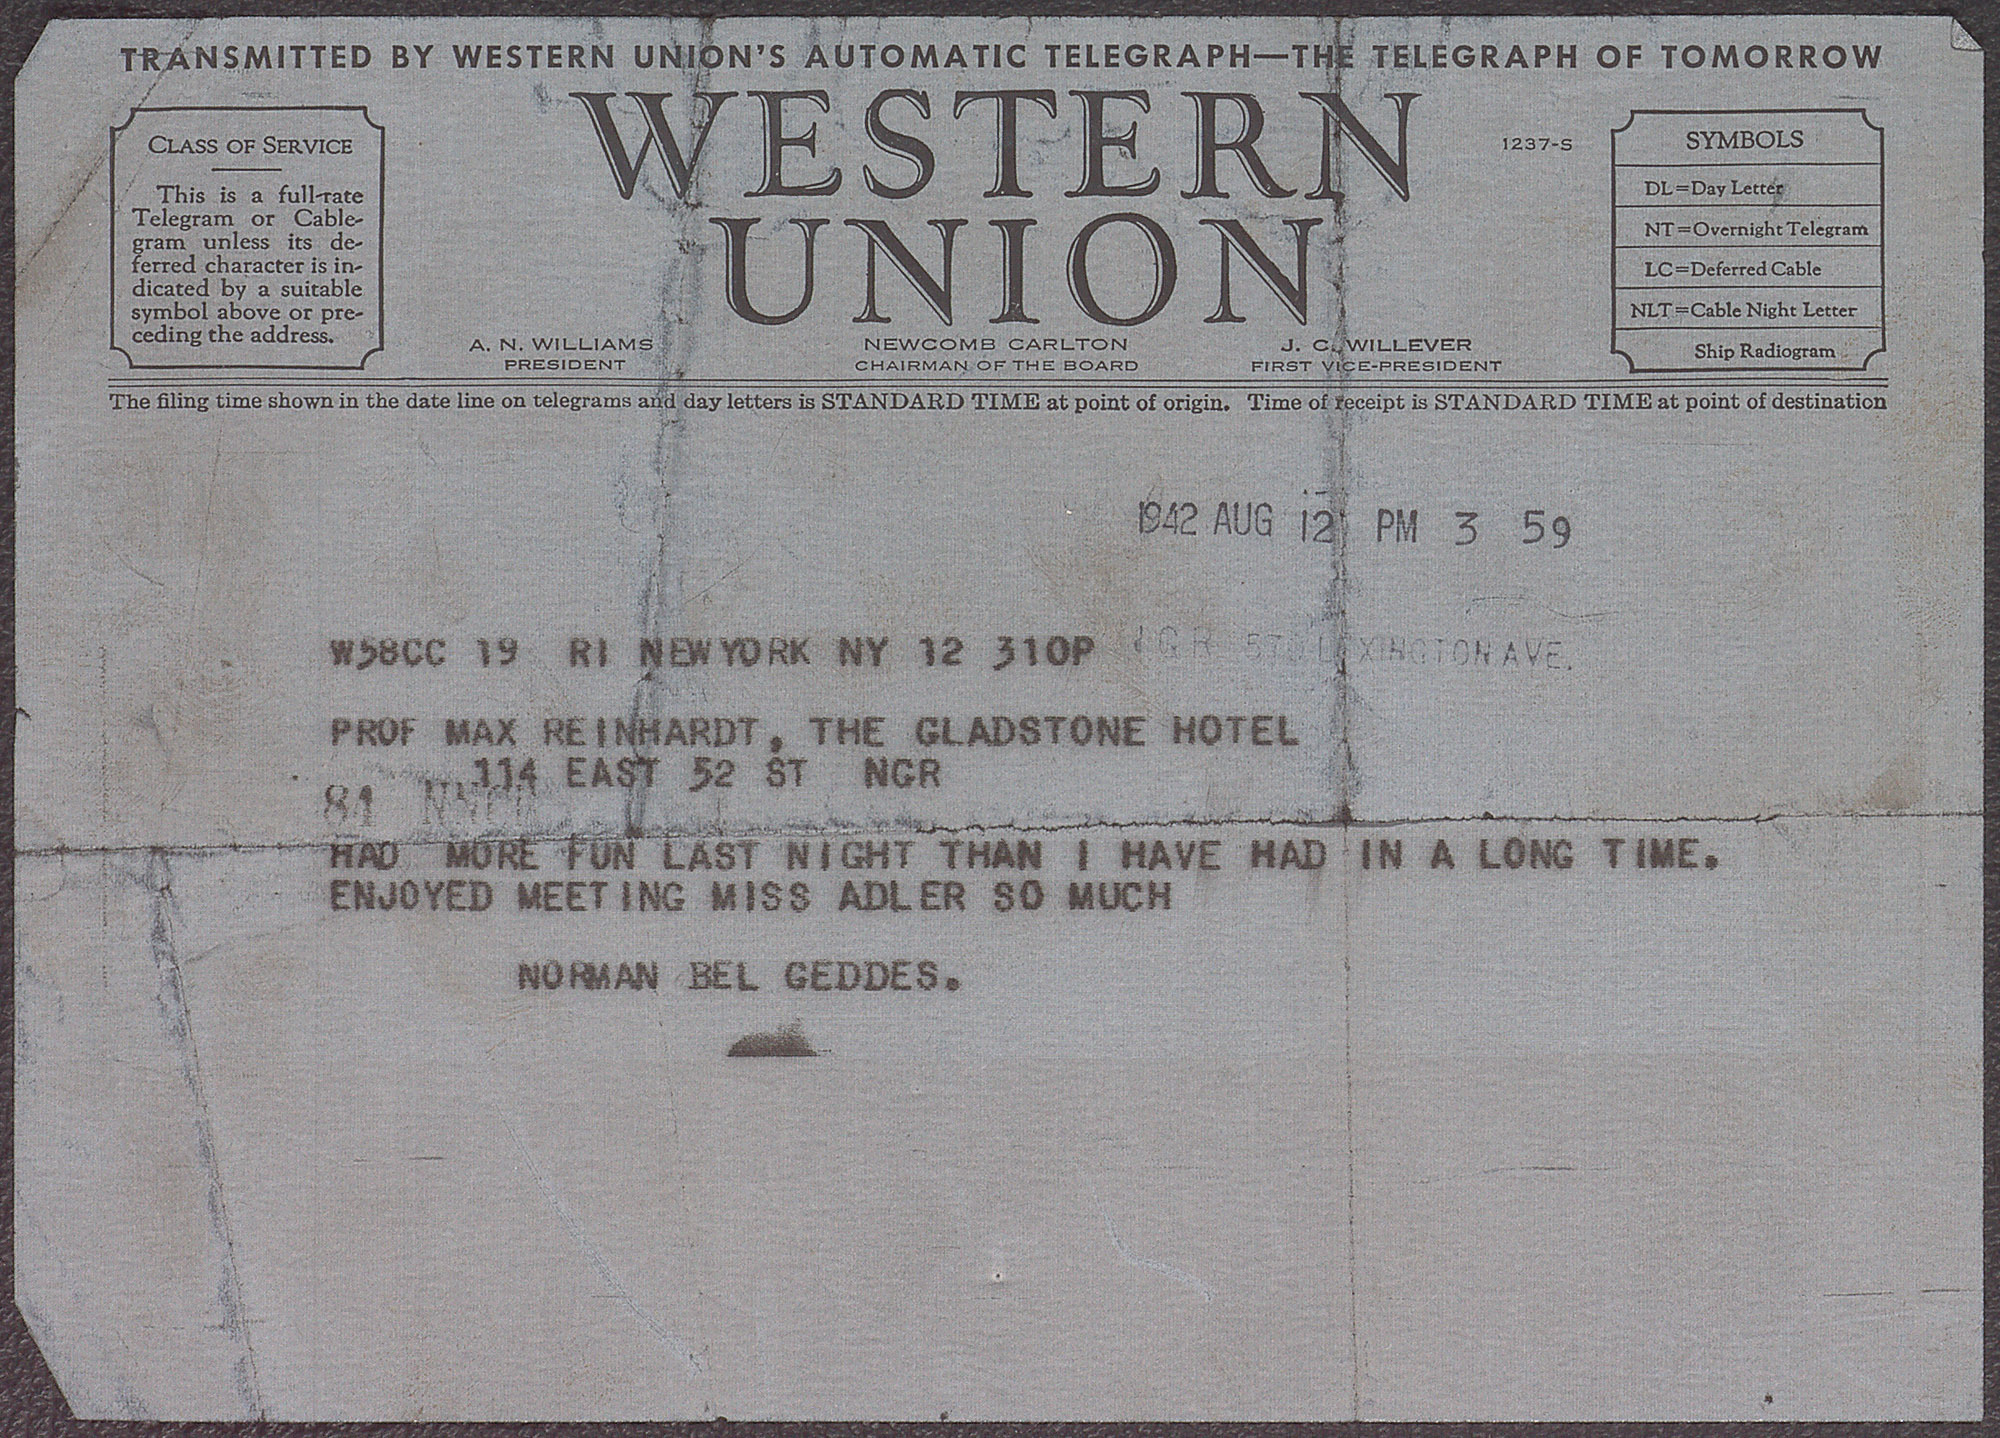 TRANSMITTED BY WESTERN UNION'S AUTOMATIC TELEGRAPH—THE TELEGRAPH OF TOMORROW
CLASS OF SERVICE
This is a full-rate
Telegram or Cable-
gram unless its de-
ferred character is in-
dicated by a suitable
symbol above or pre-
ceding the address.
WESTERN
UNION
1237-S
A. N. WILLIAMS
PRESIDENT
NEWCOMB CARLTON
CHAIRMAN OF THE BOARD
J. C. WILLEVER
FIRST VICE-PRESIDENT
SYMBOLS
DL=Day Letter
NT=Overnight Telegram
LC=Deferred Cable
NLT=Cable Night Letter
Ship Radiogram
The filing time shown in the date line on telegrams and day letters is STANDARD TIME at point of origin. Time of receipt is STANDARD TIME at point of destination
1942 AUG 12 PM 3 59
W58CC 19 RI NEWYORK NY 12 310P
LEXINGTON AVE.
PROF MAX REINHARDT, THE GLADSTONE HOTEL
114 EAST 52 ST NGR
81
HAD MORE FUN LAST NIGHT THAN I HAVE HAD IN A LONG TIME.
ENJOYED MEETING MISS ADLER SO MUCH
NORMAN BEL GEDDES.